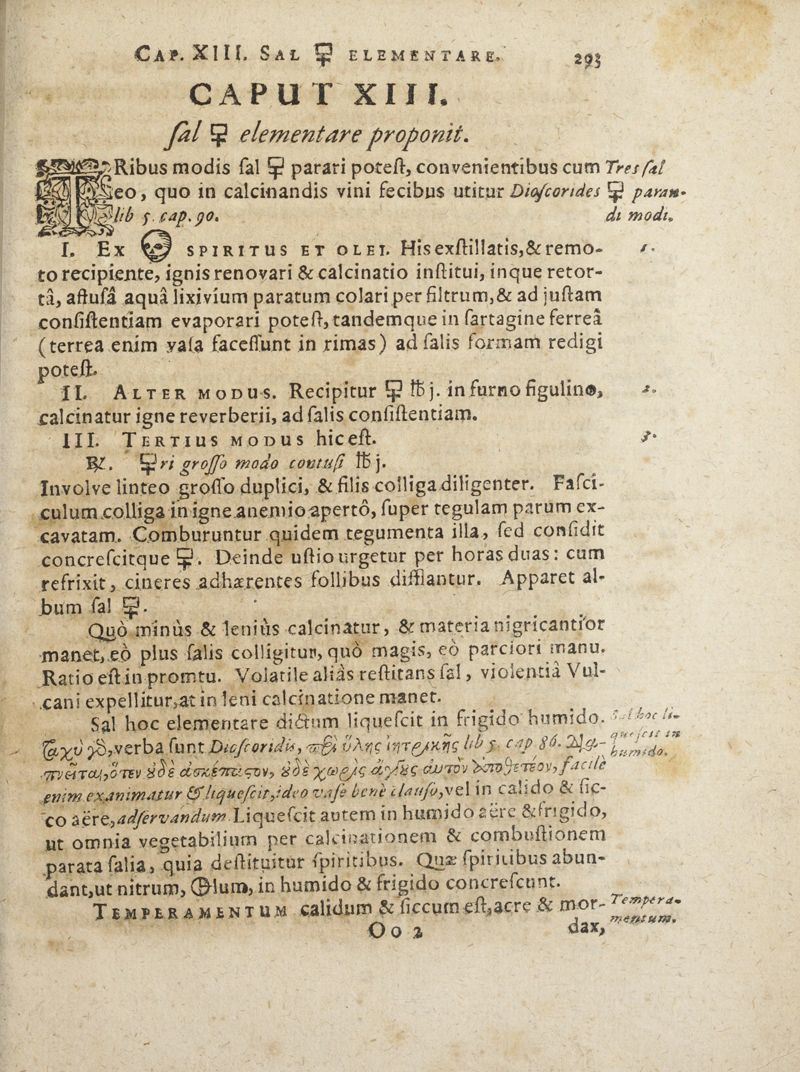 CAP. XIII. SAL 🜿 ELEMENTARE. 293
CAPUT XIII.
ſal 🜿 elementare proponit.
TRibus modis ſal 🜿 parari poteſt, convenientibus cum Tres ſal
eo, quo in calcinandis vini fecibus utitur Dioſcorides 🜿 paran-
lib 5. cap. 90. di modi.
I. EX SPIRITUS ET OLEI. His exſtillatis, & remo- 1.
to recipiente, ignis renovari & calcinatio inſtitui, inque retor-
tâ, affuſâ aquâ lixivium paratum colari per filtrum, & ad juſtam
conſiſtentiam evaporari poteſt, tandemque in ſartagine ferreâ
(terrea enim vaſa faceſſunt in rimas) ad ſalis formam redigi
poteſt.
II. ALTER MODUS. Recipitur 🜿 ℔ j. in furno figulino, 2.
calcinatur igne reverberii, ad ſalis conſiſtentiam.
III. TERTIUS MODUS hic eſt. 3.
℞. 🜿ri groſſo modo contuſi ℔ j.
Involve linteo groſſo duplici, & filis colliga diligenter. Faſci-
culum colliga in igne anemio aperto, ſuper tegulam parum ex-
cavatam. Comburuntur quidem tegumenta illa, ſed conſidit
concreſcitque 🜿. Deinde uſtio urgetur per horas duas: cum
refrixit, cineres adhærentes follibus difflantur. Apparet al-
bum ſal 🜿.
Quò minùs & leniùs calcinatur, & materia nigricantior
manet, eò plus ſalis colligitur, quò magis, eò parciori manu.
Ratio eſt in promtu. Volatile aliàs reſtitans ſal, violentiâ Vul-
cani expellitur, at in leni calcinatione manet.
Sal hoc elementare dictum liquefcit in frigido humido. Sal hoc li-
verba ſunt Dioſcoridis, περὶ ὕλης ἰητρικῆς lib 5. cap. 86. queſcit in
humido.
facile
enim exanimatur & liqueſcit, ideo vaſe bene clauſo, vel in calido & ſic-
co aëre, adſervandum. Liqueſcit autem in humido aëre & frigido,
ut omnia vegetabilium per calcinationem & combuſtionem
parata ſalia, quia deſtituitur ſpiritibus. Quæ ſpiritibus abun-
dant, ut nitrum, lum, in humido & frigido concreſcunt.
TEMPERAMENTUM calidum & ſiccum eſt, acre & mor- Tempera-
mentum.
Oo 2 dax,